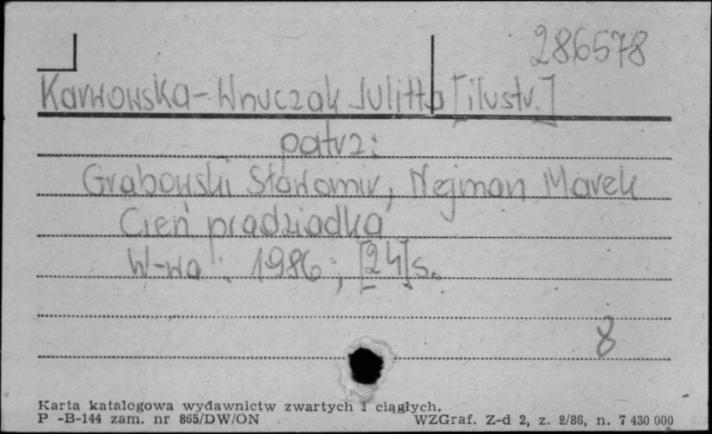 286578
Karwowska-Wnuczak Julitta [ilustr.]
patrz:
Grabowski Sławomir, Nejman Marek
Cień pradziadka
W-wa : 1986; [24] s.
8
Karta katalogowa wydawnictw zwartych i ciągłych.
P -B-144 zam. nr 865/DW/ON WZGraf. Z-d 2, z. 2/86, n. 7 430 000